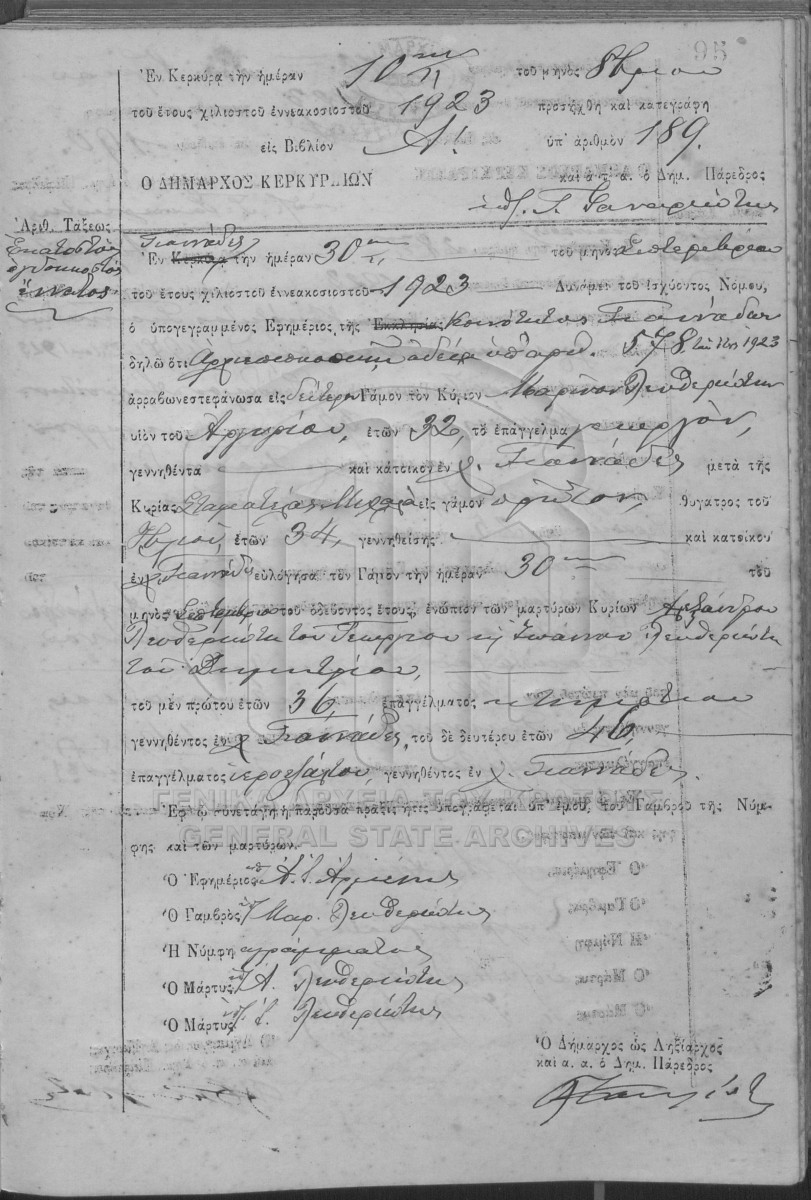 95
Ἐν Κερκύρᾳ τὴν ἡμέραν 10ην τοῦ μηνὸς 8βρίου
τοῦ ἔτους χιλιοστοῦ ἐννεακοσιοστοῦ 1923 προσήχθη καὶ κατεγράφη
εἰς Βιβλίον Α! ὑπ' ἀριθμὸν 189.
Ο ΔΗΜΑΡΧΟΣ ΚΕΡΚΥΡΑΙΩΝ καὶ α. τ. α. ὁ Δημ. Πάρεδρος
Ἀριθ. Τάξεως
Ἑκατοστὸς
ὀγδοηκοστὸς
ἔννατος
Γιαννάδες
Ἐν Κερκύρᾳ τὴν ἡμέραν 30ην τοῦ μηνὸς Σεπτεμβρίου
τοῦ ἔτους χιλιοστοῦ ἐννεακοσιοστοῦ 1923 Δυνάμει τοῦ ἰσχύοντος Νόμου,
ὁ ὑπογεγραμμένος Ἐφημέριος τῆς Ἐκκλησίας Κοινότητος Γιαννάδων
δηλῶ ὅτι Ἀρχιεπισκοπικῇ ἀδείᾳ ὑπ' ἀριθ. 578 1923
ἀρραβωνεστεφάνωσα εἰς δεύτερον Γάμον τὸν Κύριον Μαρῖνον Λευθεριώτην
υἱὸν τοῦ Ἀργυρίου, ἐτῶν 32, τὸ ἐπάγγελμα γεωργὸν,
γεννηθέντα καὶ κάτοικον ἐν χ. Γιαννάδες μετὰ τῆς
Κυρίας Σταματέλας εἰς γάμον πρῶτον, θυγατρὸς τοῦ
ἐτῶν 34, γεννηθείσης καὶ κατοίκου
ἐν χ. Γιαννάδες εὐλόγησα τὸν Γάμον τὴν ἡμέραν 30ην τοῦ
μηνὸς Σεπτεμβρίου τοῦ ὁδεύοντος ἔτους, ἐνώπιον τῶν μαρτύρων Κυρίων Ἀλεξάνδρου
Λευθεριώτη τοῦ Γεωργίου κ Ἰωάννου Λευθεριώτη
τοῦ Δημητρίου,
τοῦ μὲν πρώτου ἐτῶν 36, ἐπαγγέλματος κτηματίου
γεννηθέντος ἐν χ. Γιαννάδες, τοῦ δὲ δευτέρου ἐτῶν 46,
ἐπαγγέλματος ἱεροψάλτου, γεννηθέντος ἐν χ. Γιαννάδες.
ΓΕΝΙΚΑ ΑΡΧΕΙΑ ΤΟΥ ΚΡΑΤΟΥΣ
Ἐφ' ᾧ συνετάγη ἡ παροῦσα πρᾶξις ἥτις ὑπογράφεται ὑπ' ἐμοῦ, τοῦ Γαμβροῦ τῆς Νύμ-
GENERAL STATE ARCHIVES
φης καὶ τῶν μαρτύρων.
Ὁ Ἐφημέριος
Ὁ Γαμβρὸς Μαρ. Λευθεριώτης
Ἡ Νύμφη ἀγράμματος
Ὁ Μάρτυς Α. Λευθεριώτης
Ὁ Μάρτυς Ἰ. Λευθεριώτης
Ὁ Δήμαρχος ὡς Ληξίαρχος
καὶ α. α. ὁ Δημ. Πάρεδρος